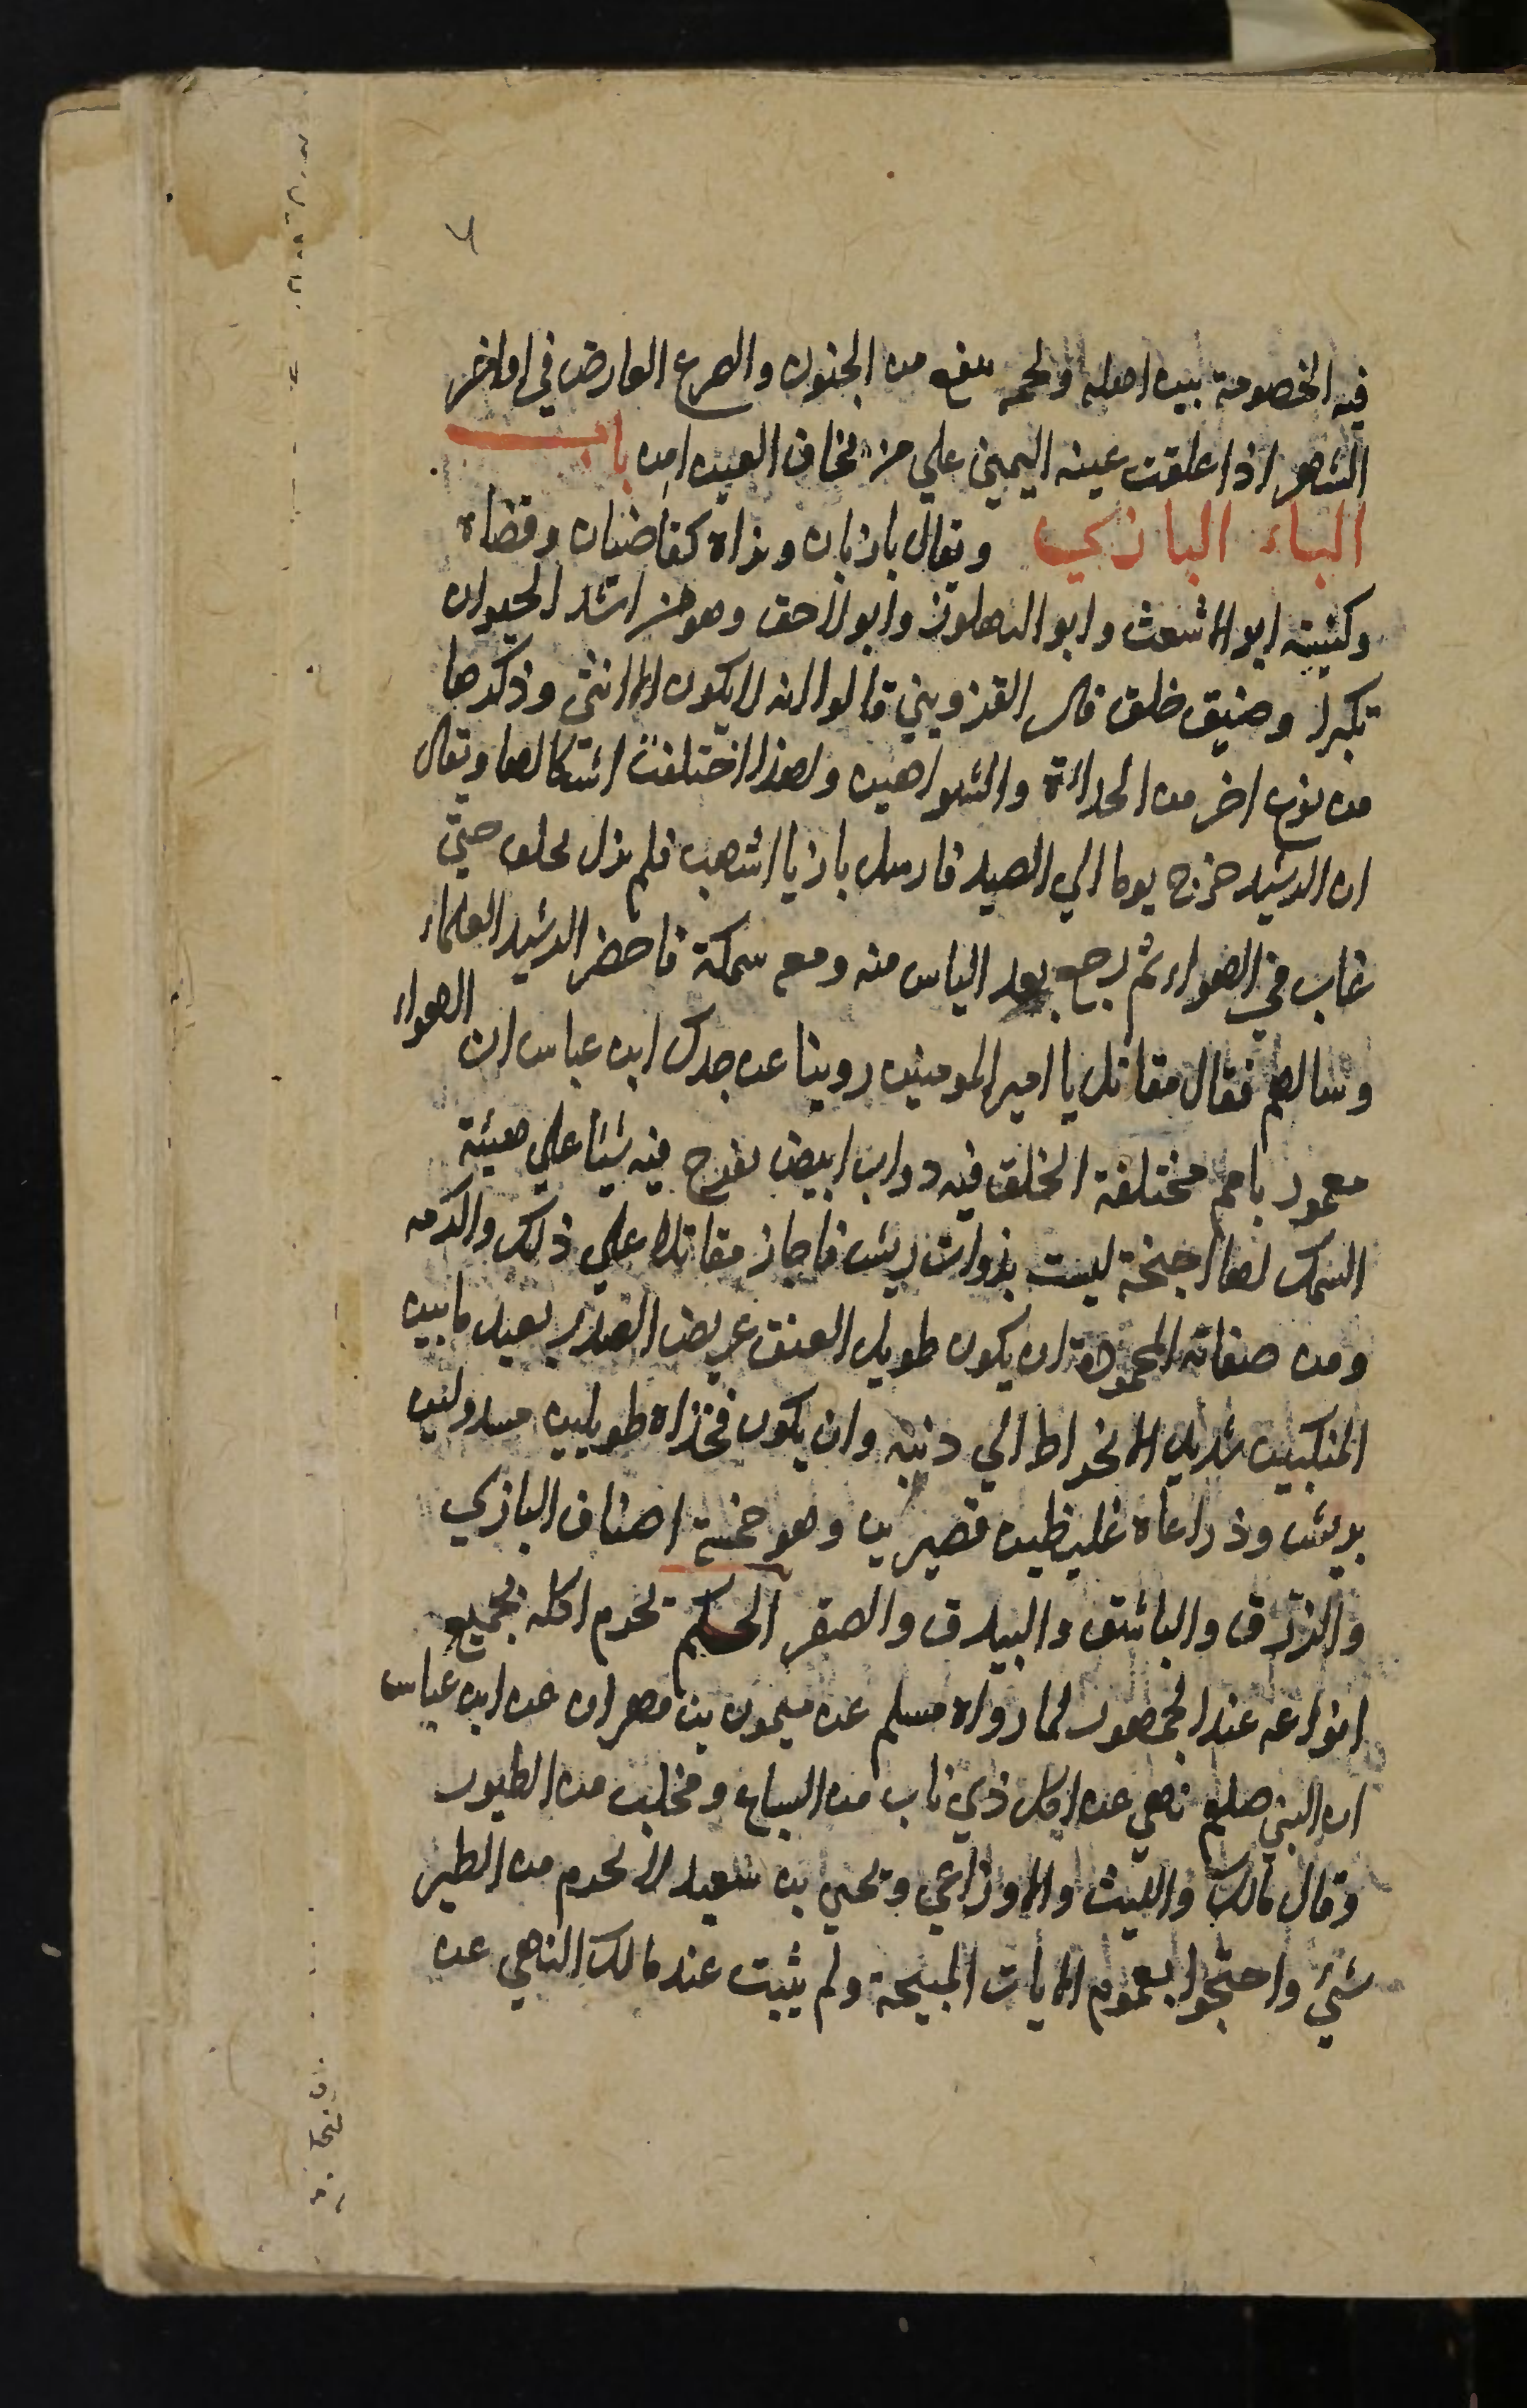 فيه الخصومة بين اهله ولحمه ينفع من الجنون والصرع العارض في اواخر
الشهر اذا علقت عينه اليمين علي من يخاف العين امن باب
الباء البازي ويقال بازيان وبزاة كقاضيان وقضاة
وكنيته ابو الاشعث وابو البهلول وابو لاحق وهو من اشد الحيوان
تكبرا وضيق خلق قال القزويني قالوا انه لا يكون الا انثي وذكرها
من نوع اخر من الحدائة والشواهين ولهذا اختلفت اشكالها ويقال
ان الرشيد خرج يوما الي الصيد فارسل بازيا اشهب فلم يزل يحلق حتي
غاب في الهواء ثم رجع بعد الياس منه ومعه سمكة فاحضر الرشيد العلماء
وسالهم فقال مقاتل يا امير المومنين روينا عن جدك ابن عباس ان الهواء
معمور بامم مختلفة الخلق فيه دواب ابيض تفرخ فيه شيئا علي هيئة
السمك لها اجنحة ليست بذوات ريش فاجاز مقاتلا علي ذلك واكرمه
ومن صفاته المحمودة ان يكون طويل العنق عريض الصدر بعيد ما بين
المنكبين شديد الانخراط الي ذنبه وان يكون فخذاه طويلين مسرولين
بريش وذراعاه غليظين قصيرين وهو خمسة اصناف البازي
والزرق والباشق والبيدق والصقر الحكم يحرم اكله بجميع
انواعه عند الجمهور لما رواه مسلم عن ميمون بن مهران عن ابن عباس
ان النبي صلعم نهي عن اكل ذي ناب من السباع ومخلب من الطيور
وقال مالك والليث والاوزاعي ويحيي بن سعيد لا يحرم من الطير
شيئ واحتجوا بعموم الايات المبيحة ولم يثبت عند مالك النهي عن